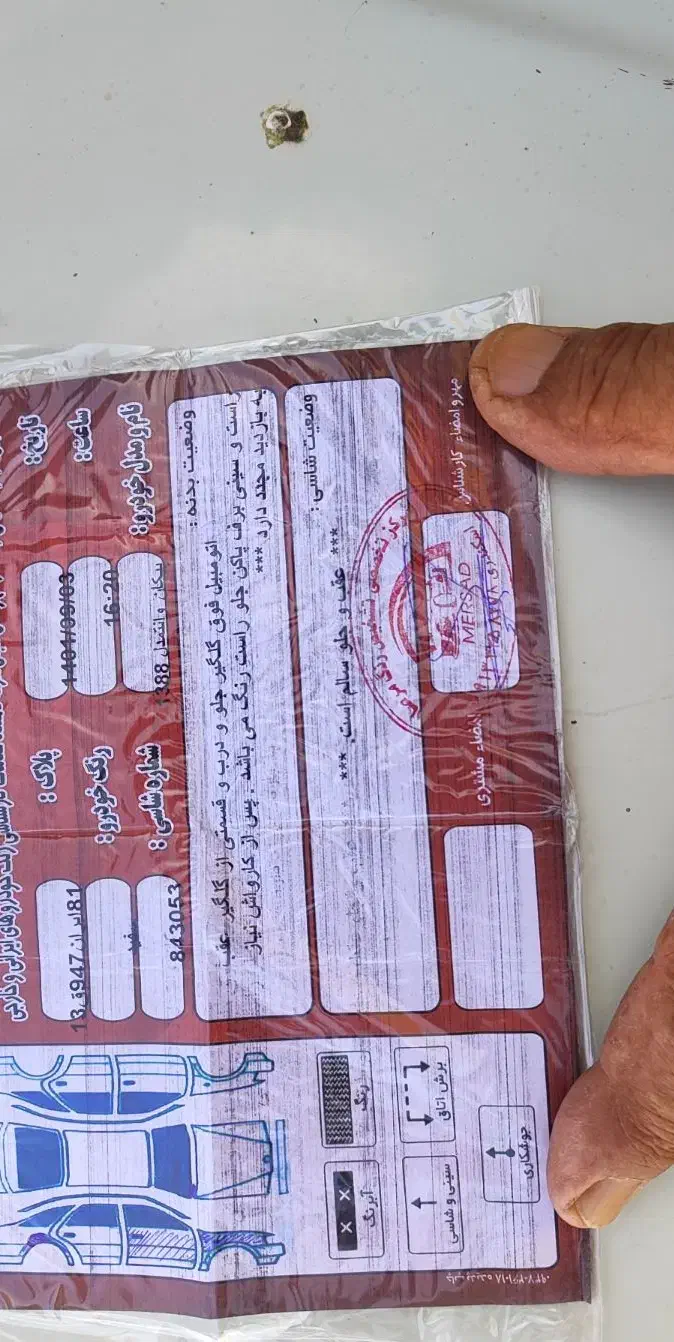 تاریخ: 1401/09/03
پلاک:
ساعت: 16:20
رنگ خودرو:
نام و مدل خودرو: پیکان وانت مدل 1388
شماره شاسی: 843053
وضعیت بدنه:
اتومبیل فوق گلگیر جلو و درب و قسمتی از گلگیر عقب
راست و سینی برف پاکن جلو راست رنگ می باشد . پس از کارواش نیاز
به بازدید مجدد دارد ***
وضعیت شاسی:
*** عقب و جلو سالم است. ***
مهر و امضاء کارشناس
MERSAD
امضاء مشتری
رنگ
آبرنگ
برش اتاق
سینی و شاسی
جوشکاری